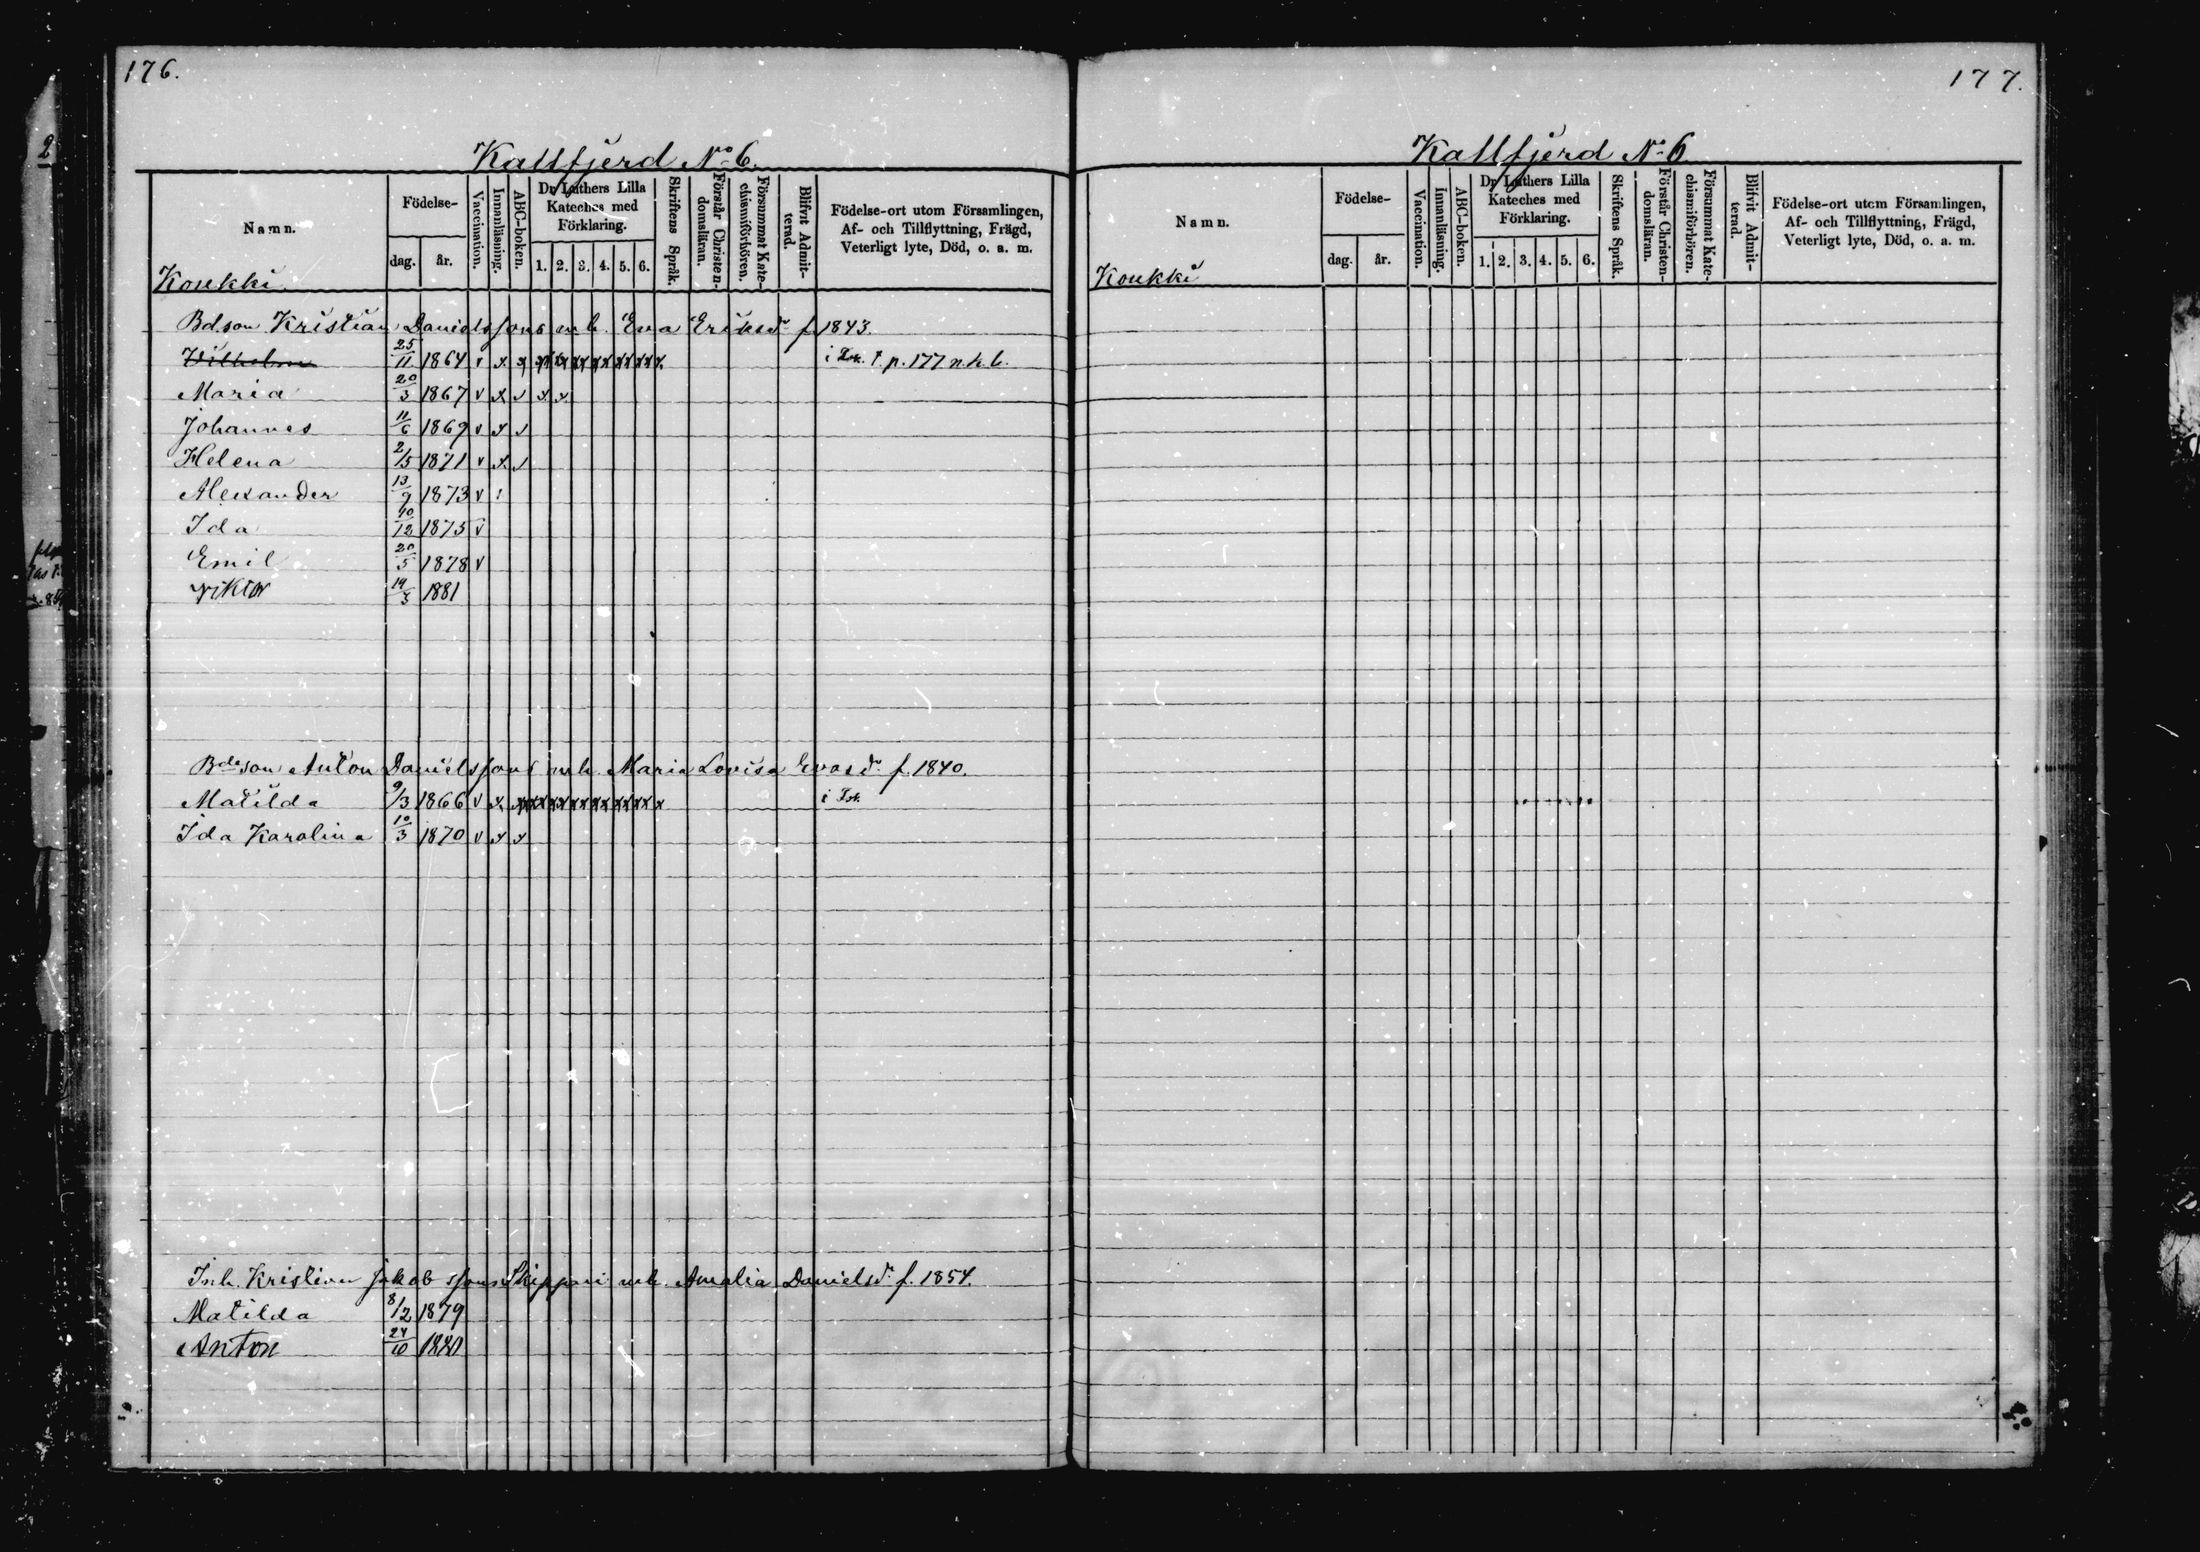 176.
Kallfjerd No 6.
Namn.
Födelse-
dag. år.
Vaccination.
Innanläsning.
ABC-boken.
Dr Luthers Lilla
Kateches med
Förklaring.
1. 2. 3. 4. 5. 6.
Skriftens Språk.
Förstår Christen-
domsläran.
Försummat Kate-
chismiförhören.
Blifvit Admit-
terad.
Födelse-ort utom Församlingen,
Af- och Tillflyttning, Frägd,
Veterligt lyte, Död, o. a. m.
Koukki
Bdson Kristian Danielssons enk. Eva Eriksdr f. 1843.
Vilhelm 25/11 1864 v x x x x x x x x x x x x x x x i Tvk. t. p. 177 n.k.b.
Maria 20/3 1867 v x v x x
Johannes 11/6 1869 v x v
Helena 2/5 1871 v x v
Alexander 13/9 1873 v
Ida 10/12 1875 v
Emil 20/5 1878 v
Viktor 14/3 1881
Bdeson Anton Danielssons enk. Maria Lovisa Evasdr f. 1840.
Matilda 9/3 1866 v x x x x x x x x x x x x x x x i Tvk.
Ida Karolina 10/3 1870 v x x
Inh. Kristian Jakobssons Skippari enk. Amalia Danielsdr f. 1854.
Matilda 8/2 1879
Anton 24/10 1880
177.
Kallfjerd No 6
Namn.
Födelse-
dag. år.
Vaccination.
Innanläsning.
ABC-boken.
Dr Luthers Lilla
Kateches med
Förklaring.
1. 2. 3. 4. 5. 6.
Skriftens Språk.
Förstår Christen-
domsläran.
Försummat Kate-
chismiförhören.
Blifvit Admit-
terad.
Födelse-ort utom Församlingen,
Af- och Tillflyttning, Frägd,
Veterligt lyte, Död, o. a. m.
Koukki